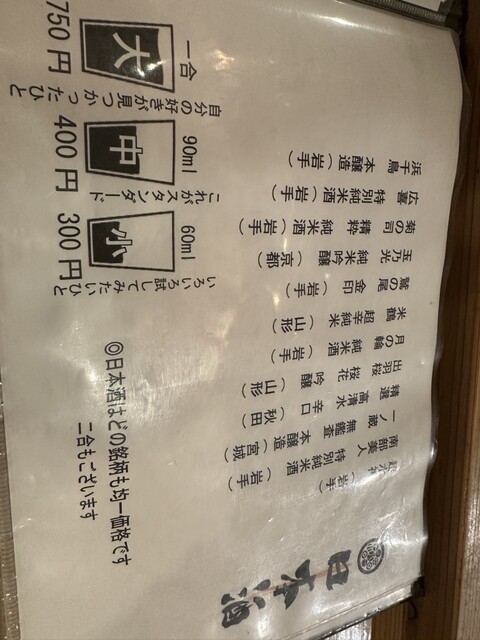 日本酒
（岩手）
南部美人　特別純米酒（岩手）
一ノ蔵　無鑑査　本醸造（宮城）
精選　高清水　辛口（秋田）
出羽桜　桜花　吟醸（山形）
月の輪　純米酒（岩手）
米鶴　超辛純米（山形）
鷲の尾　金印（岩手）
玉乃光　純米吟醸（京都）
菊の司　精粋　純米酒（岩手）
広喜　特別純米酒（岩手）
浜千鳥　本醸造（岩手）
◎日本酒はどの銘柄も均一価格です
二合もございます
いろいろ試してみたいひと
60ml
小
300円
これがスタンダード
90ml
中
400円
自分の好きが見つかったひと
一合
大
750円